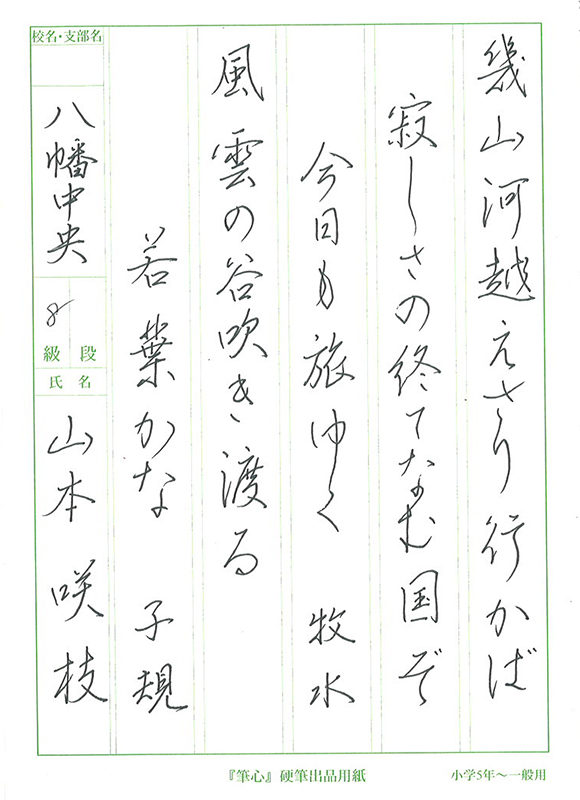 幾山河越えさり行かば
寂しさの終てなむ国ぞ
今日も旅ゆく 牧水
風雲の谷吹き渡る
若葉かな 子規
校名・支部名
八幡中央
8
級 段
氏 名
山本 咲枝
『筆心』硬筆出品用紙
小学5年〜一般用